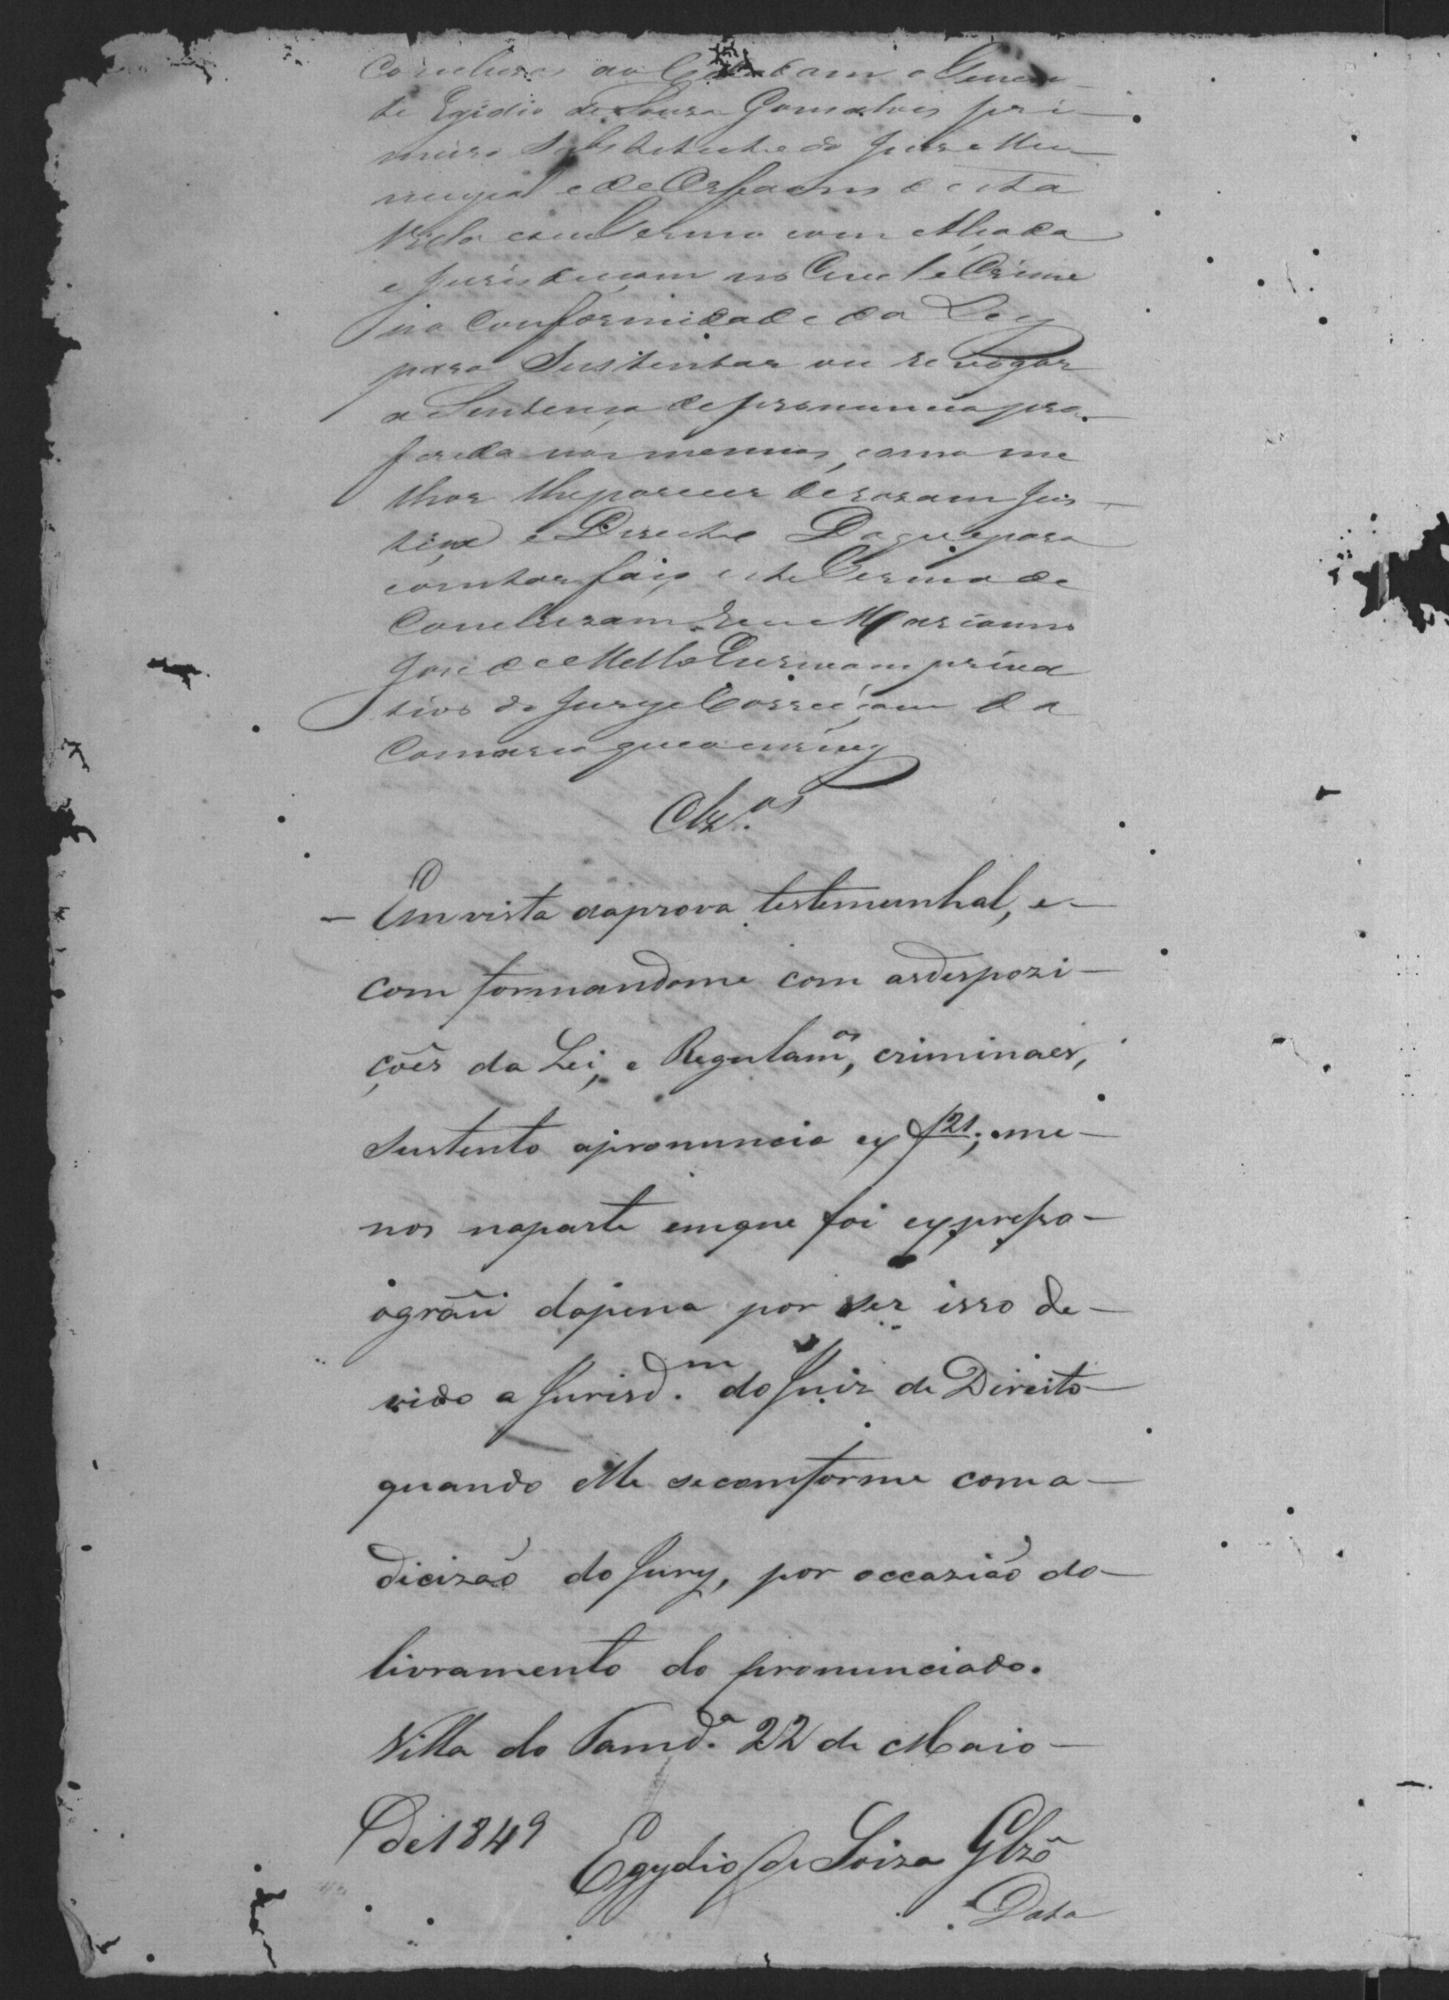 Concluzos ao Cidadam o Tenen-
te Egidio de Souza Gomsalves pri-
meiro Substituto do Juis Mu-
nicipal e de Orfaons desta
Villa e seu Termo com Alsada
e Jurisdiçam no Civel e Crime
na Conformidade da Ley
para Sustentar ou revogar
a Sentença de pronuncia pro-
ferida nos mesmos, como me
lhor lhe parecer de rozam Jus-
tiça e Direito Do que para
constar faço este Termo de
Concluzam Eu Marianno
José de Mello Escrivam priva
tivo do Jury e Correiçam da
Comarca que o escrevy
Clz.os
— Em vista da prova testemunhal, e—
com formandome com as despozi-
ções da Lei, e Regulam.os, criminaes,
sustento a pronuncia ex f 21; me-
nos na parte em que foi expreſso-
o gráu da pena por ser isso de-
vido a Jurisd.m do Juiz de Direito—
quando elle se comforme com a—
dicizaõ do Jury, por occaziaõ do—
livramento do pronunciado.
Villa do Tamd.a 22 de Maio—
de 1849 Egydio de Soiza Glz̃
Data